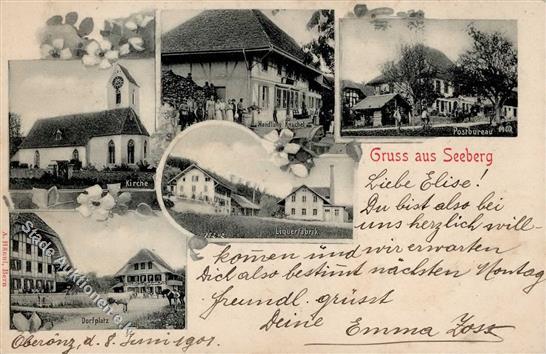 Handlung Knuchel
Postbureau
Kirche
Gruss aus Seeberg
Liqueurfabrik
Dorfplatz
A. Hänni, Bern
Stade Auktionen
Liebe Elise!
Du bist also bei
uns herzlich will-
komen und wir erwarten
Dich also bestimt nächsten Montag
freundl. grüsst
Deine Emma Joss
Oberönz, d. 8. Juni 1901.